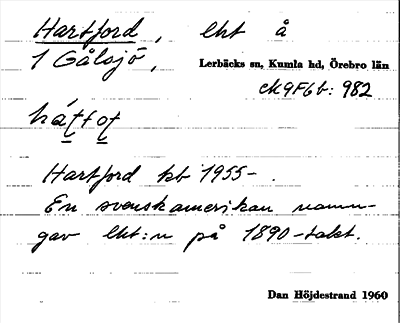 Hartford, lht å
1 Gålsjö, Lerbäcks sn, Kumla hd, Örebro län
ck9F6b: 982
háťfoť
Hartford kb 1955-.
En svenskamerikan namn-
gav lht:n på 1890-talet.
Dan Höjdestrand 1960